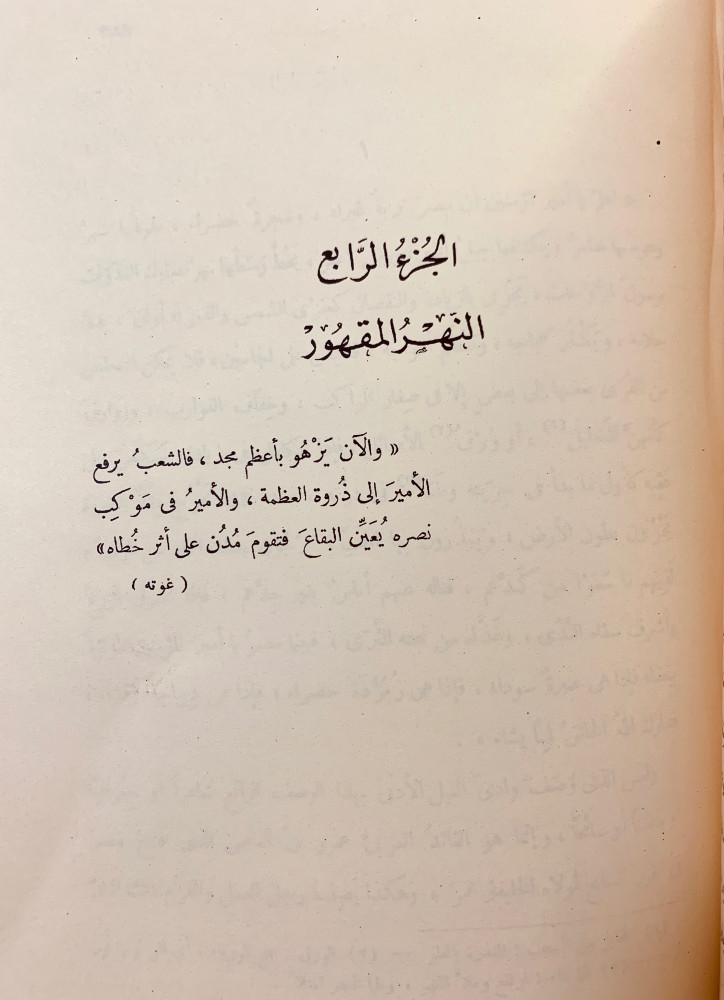 الجُزْءُ الرَّابع
النَهْرُ المقهُور
« والآن يَزْهُو بأعظم مجد ، فالشعبُ يرفع
الأميرَ إلى ذُروة العظمة ، والأميرُ فى مَوْكِب
نصره يُعَيِّن البقاعَ فتقومَ مُدُن على أثر خُطاه»
( غوته )